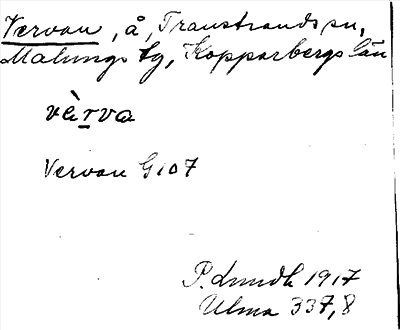 Vervan, å, Transtrands sn,
Malungs tg, Kopparbergs län
vèrva
Vervan G107
P. Lundh 1917
Ulma 337,8